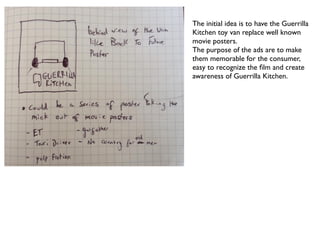 behind view of the Van
like Back To Future
Poster
GUERRILLA
KITCHEN
• Could be a series of poster taking the
mick out of movie posters
- ET - godfather
- Taxi Driver - No country for old men
- pulp fiction
The initial idea is to have the Guerrilla
Kitchen toy van replace well known
movie posters.
The purpose of the ads are to make
them memorable for the consumer,
easy to recognize the film and create
awareness of Guerrilla Kitchen.